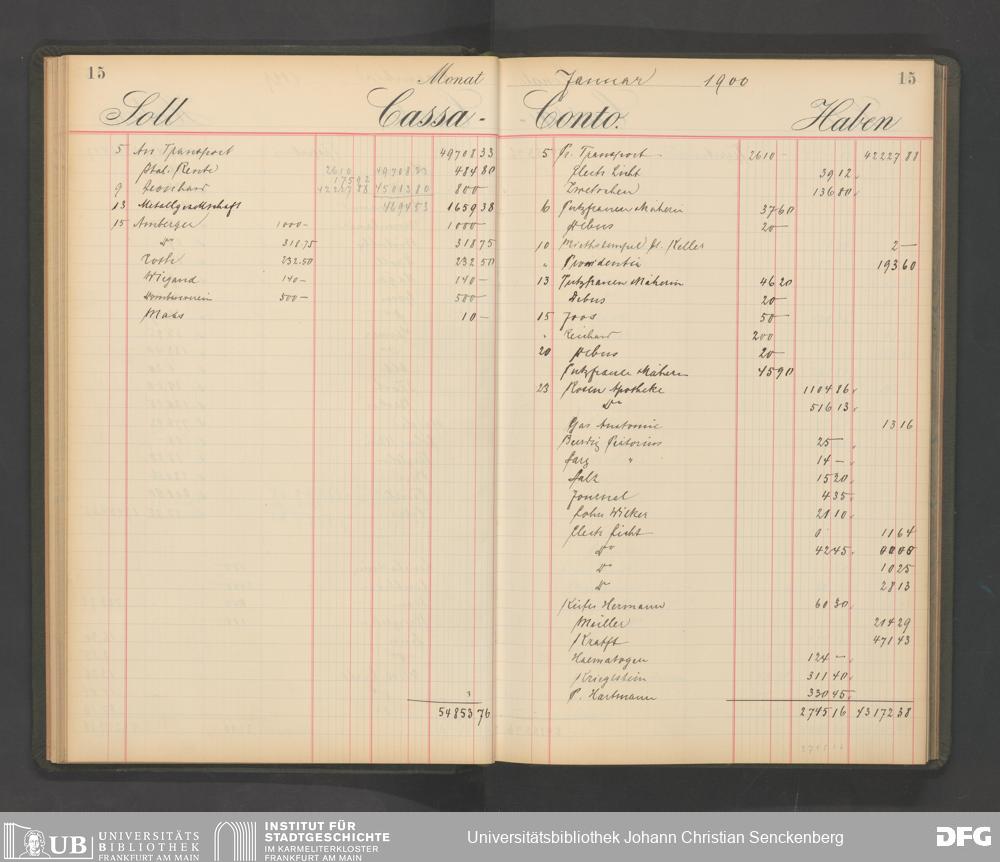 15
Monat
Soll
Cassa -
5 An Transport 49708 33
Ital. Rente 2610 49708 33 484 80
175 92
9 42227 88 45013 80 800 –
13 Metallgesellschaft 4694 53 1659 38
15 Amberger 1000 – 1000 –
Do 318.75 318 75
Roth 232.50 232 50
Wiegand 140 – 140 –
500 – 500 –
Maas 10 –
54853 76
Januar 1900
15
Conto.
Haben
5 Pr. Transport 2610 – 42227 88
Electr. Licht 39 12
Zwetschen 136 80
6 Putzfrauen Näherin 37 60
Debus 20 –
10 Miethstempel fr. Keller 2 –
" Providentia 193 60
13 Putzfrauen Näherin 46 20
Debus 20 –
15 Joos 50 –
" Reichard 200
20 Debus 20 –
Putzfrauen Näherin 45 90
23 Rosen Apotheke 1104 86
Do 516 13
Gas Anatomie 13 16
25 –
Sarg " 14 –
Salz 15 20
Journal 4 35
Lohn Wicker 21 10
Electr. Licht 0 11 64
Do 42 45
Do 10 25
Do 28 13
Keifes Hermann 60 30
Müller 214 29
Krafft 471 43
Haematogen 124 –
Krieglstein 311 40
P. Hartmann 330 45
2745 16 43172 38
UB UNIVERSITÄTS
BIBLIOTHEK
FRANKFURT AM MAIN
INSTITUT FÜR
STADTGESCHICHTE
IM KARMELITERKLOSTER
FRANKFURT AM MAIN
Universitätsbibliothek Johann Christian Senckenberg
DFG